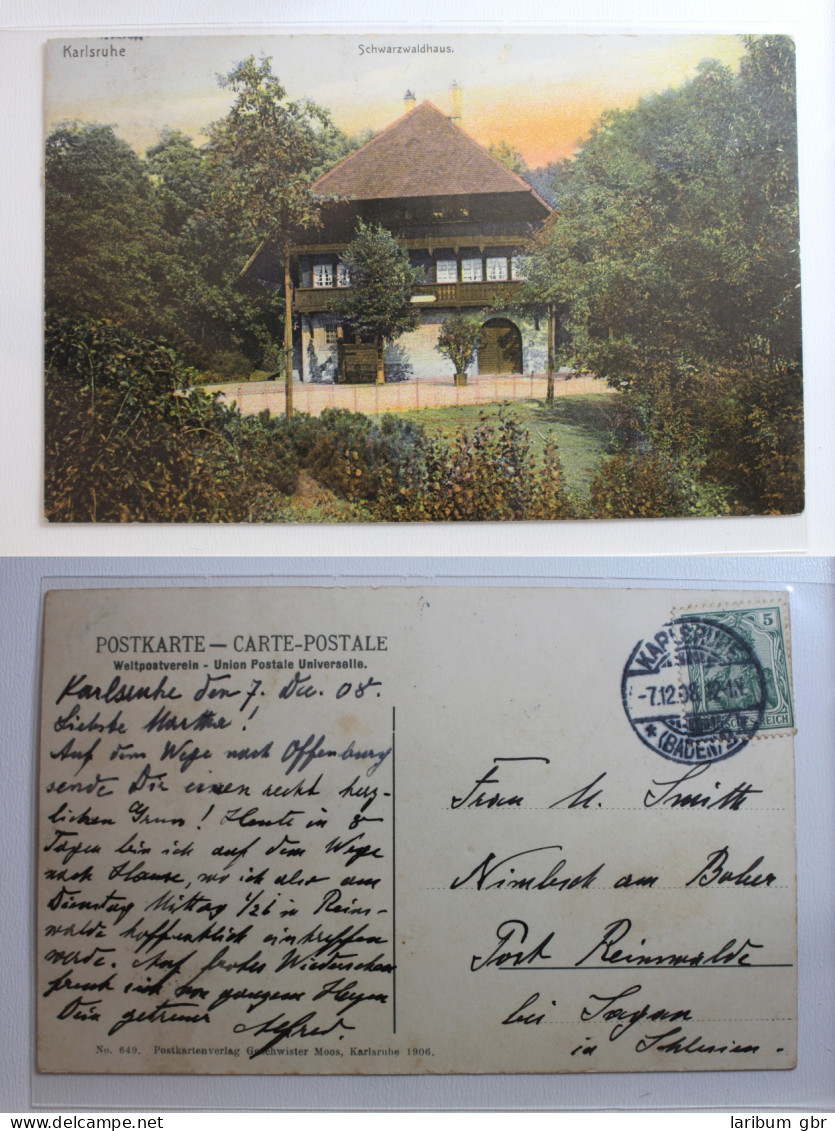 Karlsruhe
Schwarzwaldhaus.
POSTKARTE — CARTE-POSTALE
Weltpostverein - Union Postale Universelle.
Karlsruhe den 7. Dec. 08.
Liebste Martha!
Auf dem Wege nach Offenburg
sende Dir einen recht herz-
lichen Gruss! Heute in 8
Tagen bin ich auf dem Wege
nach Hause, wo ich also am
Dienstag Mittag 1/2 1 in Reins-
walde hoffentlich eintreffen
werde. Auf frohes Wiedersehen
freut sich von ganzem Herzen
Dein getreuer Alfred.
No. 649. Postkartenverlag Geschwister Moos, Karlsruhe 1906.
5
KARLSRUHE
-7.12.08. 12-1N
(BADEN) 2
Frau M. Smith
Nimbsch am Bober
Post Reinswalde
bei Sagan
in Schlesien.
www.delcampe.net
laribum gbr